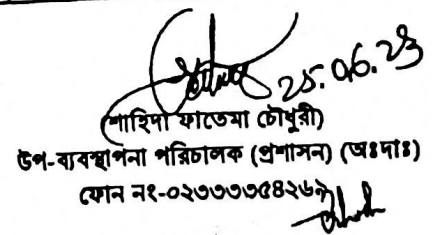 ২৫.০৬.২৩
(শাহিদা ফাতেমা চৌধুরী)
উপ-ব্যবস্থাপনা পরিচালক (প্রশাসন) (অঃদাঃ)
ফোন নং-০২৩৩৩৩৫৪২৬৯